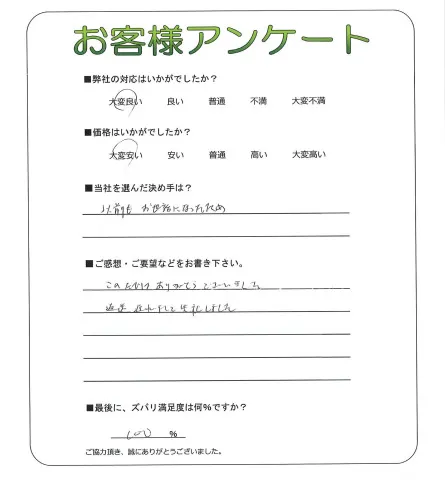 お客様アンケート
■弊社の対応はいかがでしたか？
大変良い 良い 普通 不満 大変不満
■価格はいかがでしたか？
大変安い 安い 普通 高い 大変高い
■当社を選んだ決め手は？
以前も お世話になったため
■ご感想・ご要望などをお書き下さい。
この度は ありがとうございました
遅くなりまして失礼しました
■最後に、ズバリ満足度は何%ですか？
100 %
ご協力頂き、誠にありがとうございました。